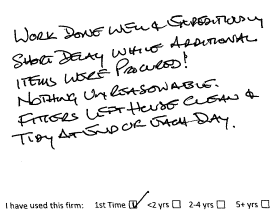 WORK DONE WELL & EXPEDITIOUSLY
SHORT DELAY WHILE ADDITIONAL
ITEMS WERE PROCURED!
NOTHING UNREASONABLE.
FITTERS LEFT HOUSE CLEAN &
TIDY AT END OF EACH DAY.
I have used this firm: 1st Time ☑ <2 yrs ☐ 2-4 yrs ☐ 5+ yrs ☐